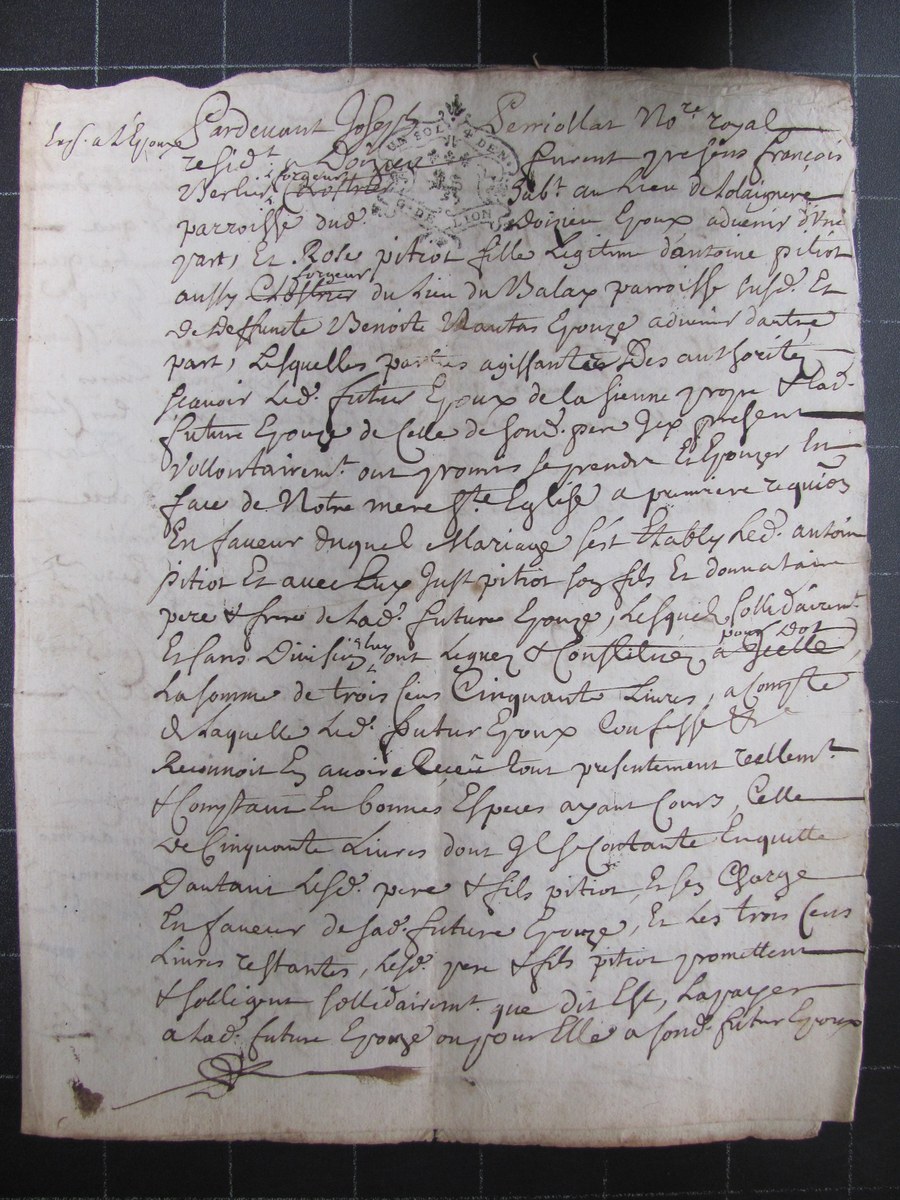 Exp. a L'Epouze
Pardevant Joseph Perriollat No.re royal
resid.t a Doizieu furent presens François
Verlieu forgeur hab.t au Lieu de
parroisse dud. doizieu Epoux advenir d'Une
part, Et Rose pitiot fille Legitime d'antoine pitiot
aussy forgeur du Lieu du Balay parroisse susd. Et
de deffuncte Benoite Epouze advenir d'autre
part, Lesquelles parties agissantes des authoritéz
scavoir Led. futur Epoux de la sienne propre & Lad.
future Epouze de Celle de sond. pere Icy present
Vollontairem.t ont promis se prendre Et Epouzer En
face de Notre mere s.te Eglise a premiere requion
En faveur duquel Mariage s'est Etably Led. antoine
pitiot Et avec Luy Just pitiot son fils Et donnataire
pere & frere de Lad. future Epouze, Lesquels sollidairem.t
Et sans Division ont & Constitué pour dot a Icelle,
La somme de trois Cens Cinquante Livres, a Compte
de Laquelle Led. futur Epoux Confesse &
Reconnoit En avoir Receu tout presentement reellem.t
& Comptant En bonnes Especes ayant Cours, Celle
de Cinquante Livres dont Il se Contante En quitte
Dautant Lesd. pere & fils pitiot, Et s'en Charge
En faveur de sad. future Epouze, Et Les trois Cens
Livres restantes, Lesd. pere & fils pitiot promettent
& sobligent sollidairemt. que dit Est, La payer
a Lad. future Epouze ou pour Elle a sond. futur Epoux
UN SOL 4 DEN
G. DE LION